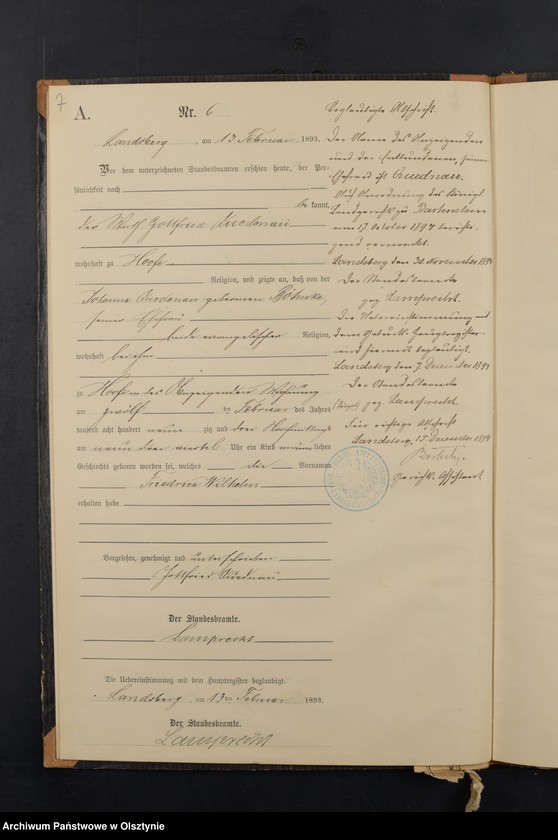 7
A.
Nr. 6
Landsberg, am 13. Februar 1893.
Vor dem unterzeichneten Standesbeamten erschien heute, der Persönlichkeit nach
bekannt,
der Gottfried Quednau
wohnhaft zu Hoofe
Religion, und zeigte an, daß von der
Johanne Quednau geborenen
seiner Ehefrau
beide evangelischer Religion,
wohnhaft bei ihm
zu Hoofe in des Wohnung
am zwölf ten Februar des Jahres
tausend acht hundert neun zig und drei Vormittags
um neun drei viertel Uhr ein Kind männlichen
Geschlechts geboren worden sei, welches die Vornamen
Friedrich Wilhelm
erhalten habe
Vorgelesen, genehmigt und unterschrieben
Gottfried Quednau
Der Standesbeamte.
Lamprecht
Die Uebereinstimmung mit dem Hauptregister beglaubigt.
Landsberg, am 13. Februar 1893.
Der Standesbeamte.
Lamprecht
Beglaubigte Abschrift.
Der Name des Anzeigenden
und der seiner
Ehefrau ist Quednau.
Auf Anordnung des Königl.
Landgerichts zu Bartenstein
vom 17. October 1894
Landsberg den 30. November 1894
Der Standesbeamte
gez. Lamprecht.
Die Uebereinstimmung mit
dem Geburts-Hauptregister
wird hiermit beglaubigt.
Landsberg den 7. December 1894
Der Standesbeamte
gez. Lamprecht.
Für richtige Abschrift
Landsberg, 15. December 1894
Gerichts-Assistent
Archiwum Państwowe w Olsztynie